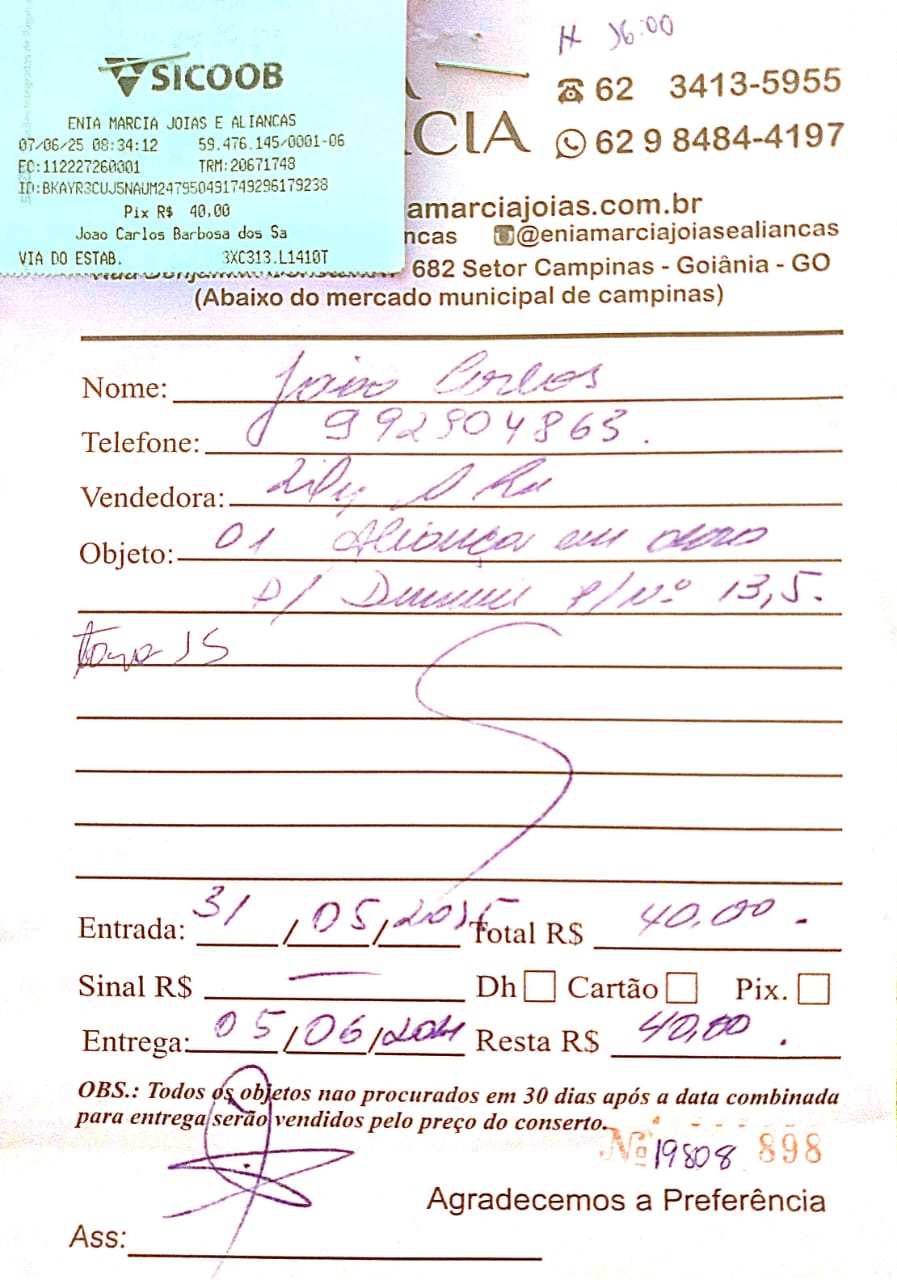 SICOOB
ENIA MARCIA JOIAS E ALIANCAS
07/06/25 08:34:12 59.476.145/0001-06
EC:112227260001 TRM:20671748
ID:BKAYR3CUJ5NAUM247950491749296179238
Pix R$ 40,00
Joao Carlos Barbosa dos Sa
VIA DO ESTAB. 3XC313.L1410T
H 16:00
62 3413-5955
CIA
62 9 8484-4197
amarciajoias.com.br
ncas @eniamarciajoiasealiancas
682 Setor Campinas - Goiânia - GO
(Abaixo do mercado municipal de campinas)
Nome: João Carlos
Telefone: 992904863.
Vendedora: Lily
Objeto: 01 Aliança em ouro
p/ Diminuir p/ Nº 13,5.
15
Entrada: 31/05/2025 Total R$ 40,00.
Sinal R$ — Dh Cartão Pix.
Entrega: 05/06/ Resta R$ 40,00.
OBS.: Todos os objetos nao procurados em 30 dias após a data combinada
para entrega serão vendidos pelo preço do conserto.
Nº 19808 898
Agradecemos a Preferência
Ass: